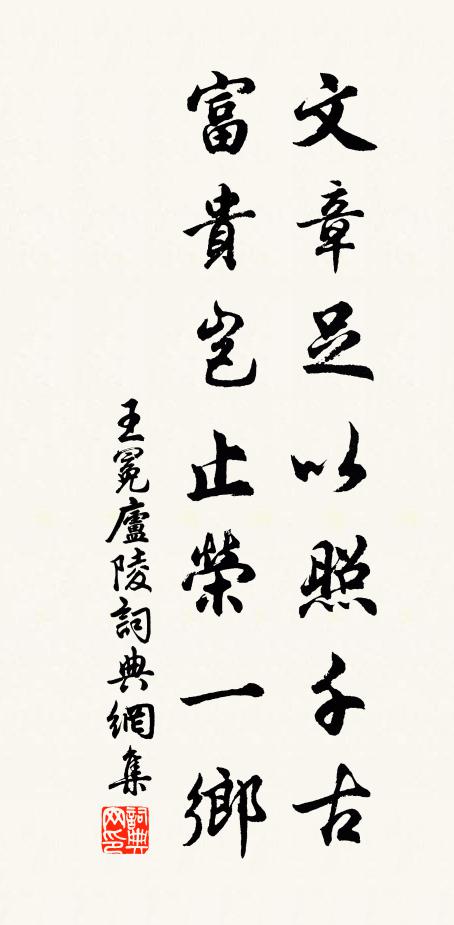 文章足以照千古
富貴豈止榮一鄉
王冕廬陵詞典網集
詞典网印